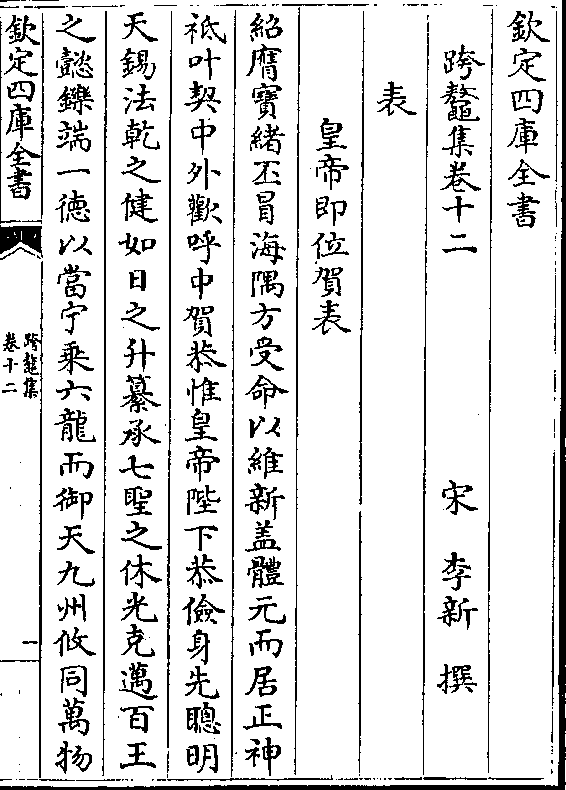 欽定四庫全書
跨鼇集卷十二
宋 李新 撰
表
皇帝即位賀表
紹膺寶緒丕冒海隅方受命以維新盖體元而居正神
祇叶契中外歡呼中賀恭惟皇帝陛下恭儉身先聰明
天錫法乾之健如日之升纂承七聖之休光克邁百王
之懿鑠端一徳以當宁乘六龍而御天九州攸同萬物
欽定四庫全書
跨鼇集
卷十二
一